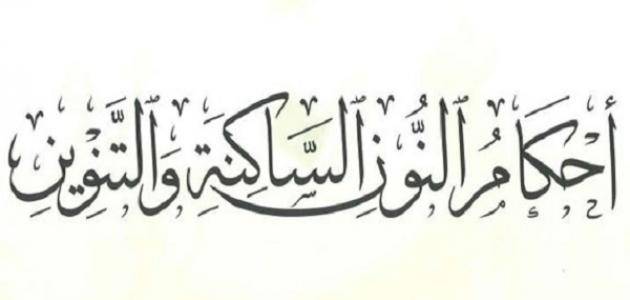 أَحْكَامُ ٱلنُّونِ ٱلسَّاكِنَةِ وَٱلتَّنْوِينِ